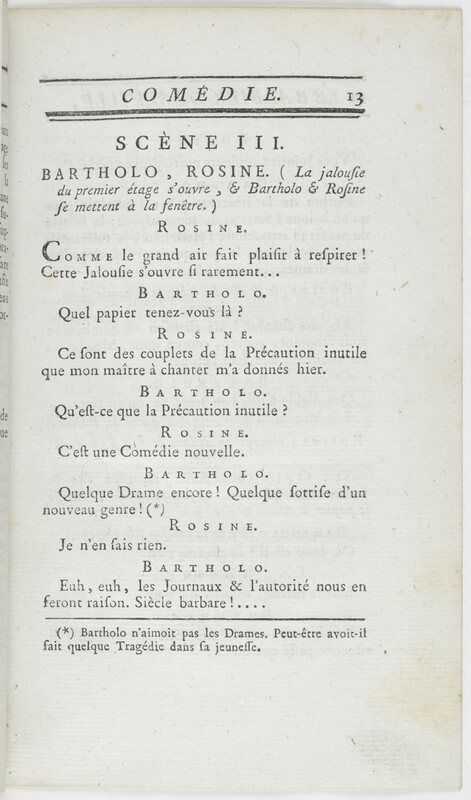 COMÉDIE. 13
SCÈNE III.
BARTHOLO, ROSINE. ( La jalouſie
du premier étage s'ouvre, & Bartholo & Roſine
ſe mettent à la fenêtre. )
ROSINE.
COMME le grand air fait plaiſir à reſpirer !
Cette Jalouſie s'ouvre ſi rarement...
BARTHOLO.
Quel papier tenez-vous là ?
ROSINE.
Ce ſont des couplets de la Précaution inutile
que mon maître à chanter m'a donnés hier.
BARTHOLO.
Qu'eſt-ce que la Précaution inutile ?
ROSINE.
C'eſt une Comédie nouvelle.
BARTHOLO.
Quelque Drame encore ! Quelque ſottiſe d'un
nouveau genre ! (*)
ROSINE.
Je n'en ſais rien.
BARTHOLO.
Euh, euh, les Journaux & l'autorité nous en
feront raiſon. Siècle barbare !....
(*) Bartholo n'aimoit pas les Drames. Peut-être avoit-il
fait quelque Tragédie dans ſa jeuneſſe.